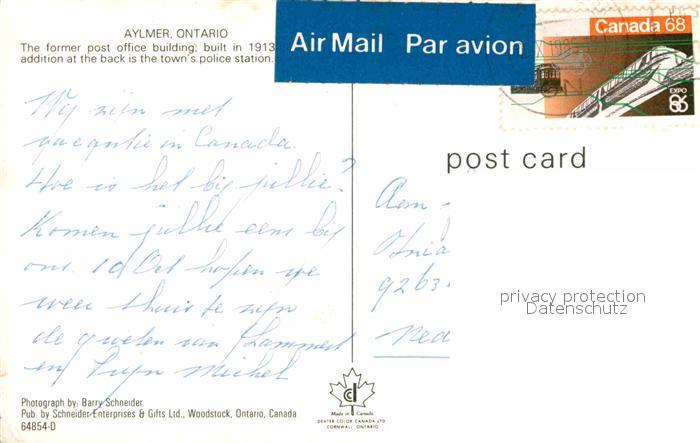 AYLMER, ONTARIO
The former post office building, built in 1913
addition at the back is the town's police station.
Air Mail Par avion
Canada 68
EXPO
86
post card
Wij zijn met
vacantie in Canada.
Hoe is het bij jullie?
Komen jullie eens bij
ons. 10 Oct hopen we
weer thuis te zijn
de groeten van Lammert
en Michel
Aan
9263
Ned
privacy protection
Datenschutz
Photograph by: Barry Schneider.
Pub. by Schneider Enterprises & Gifts Ltd., Woodstock, Ontario, Canada
64854-D
Made in Canada
DEXTER COLOR CANADA LTD
CORNWALL ONTARIO